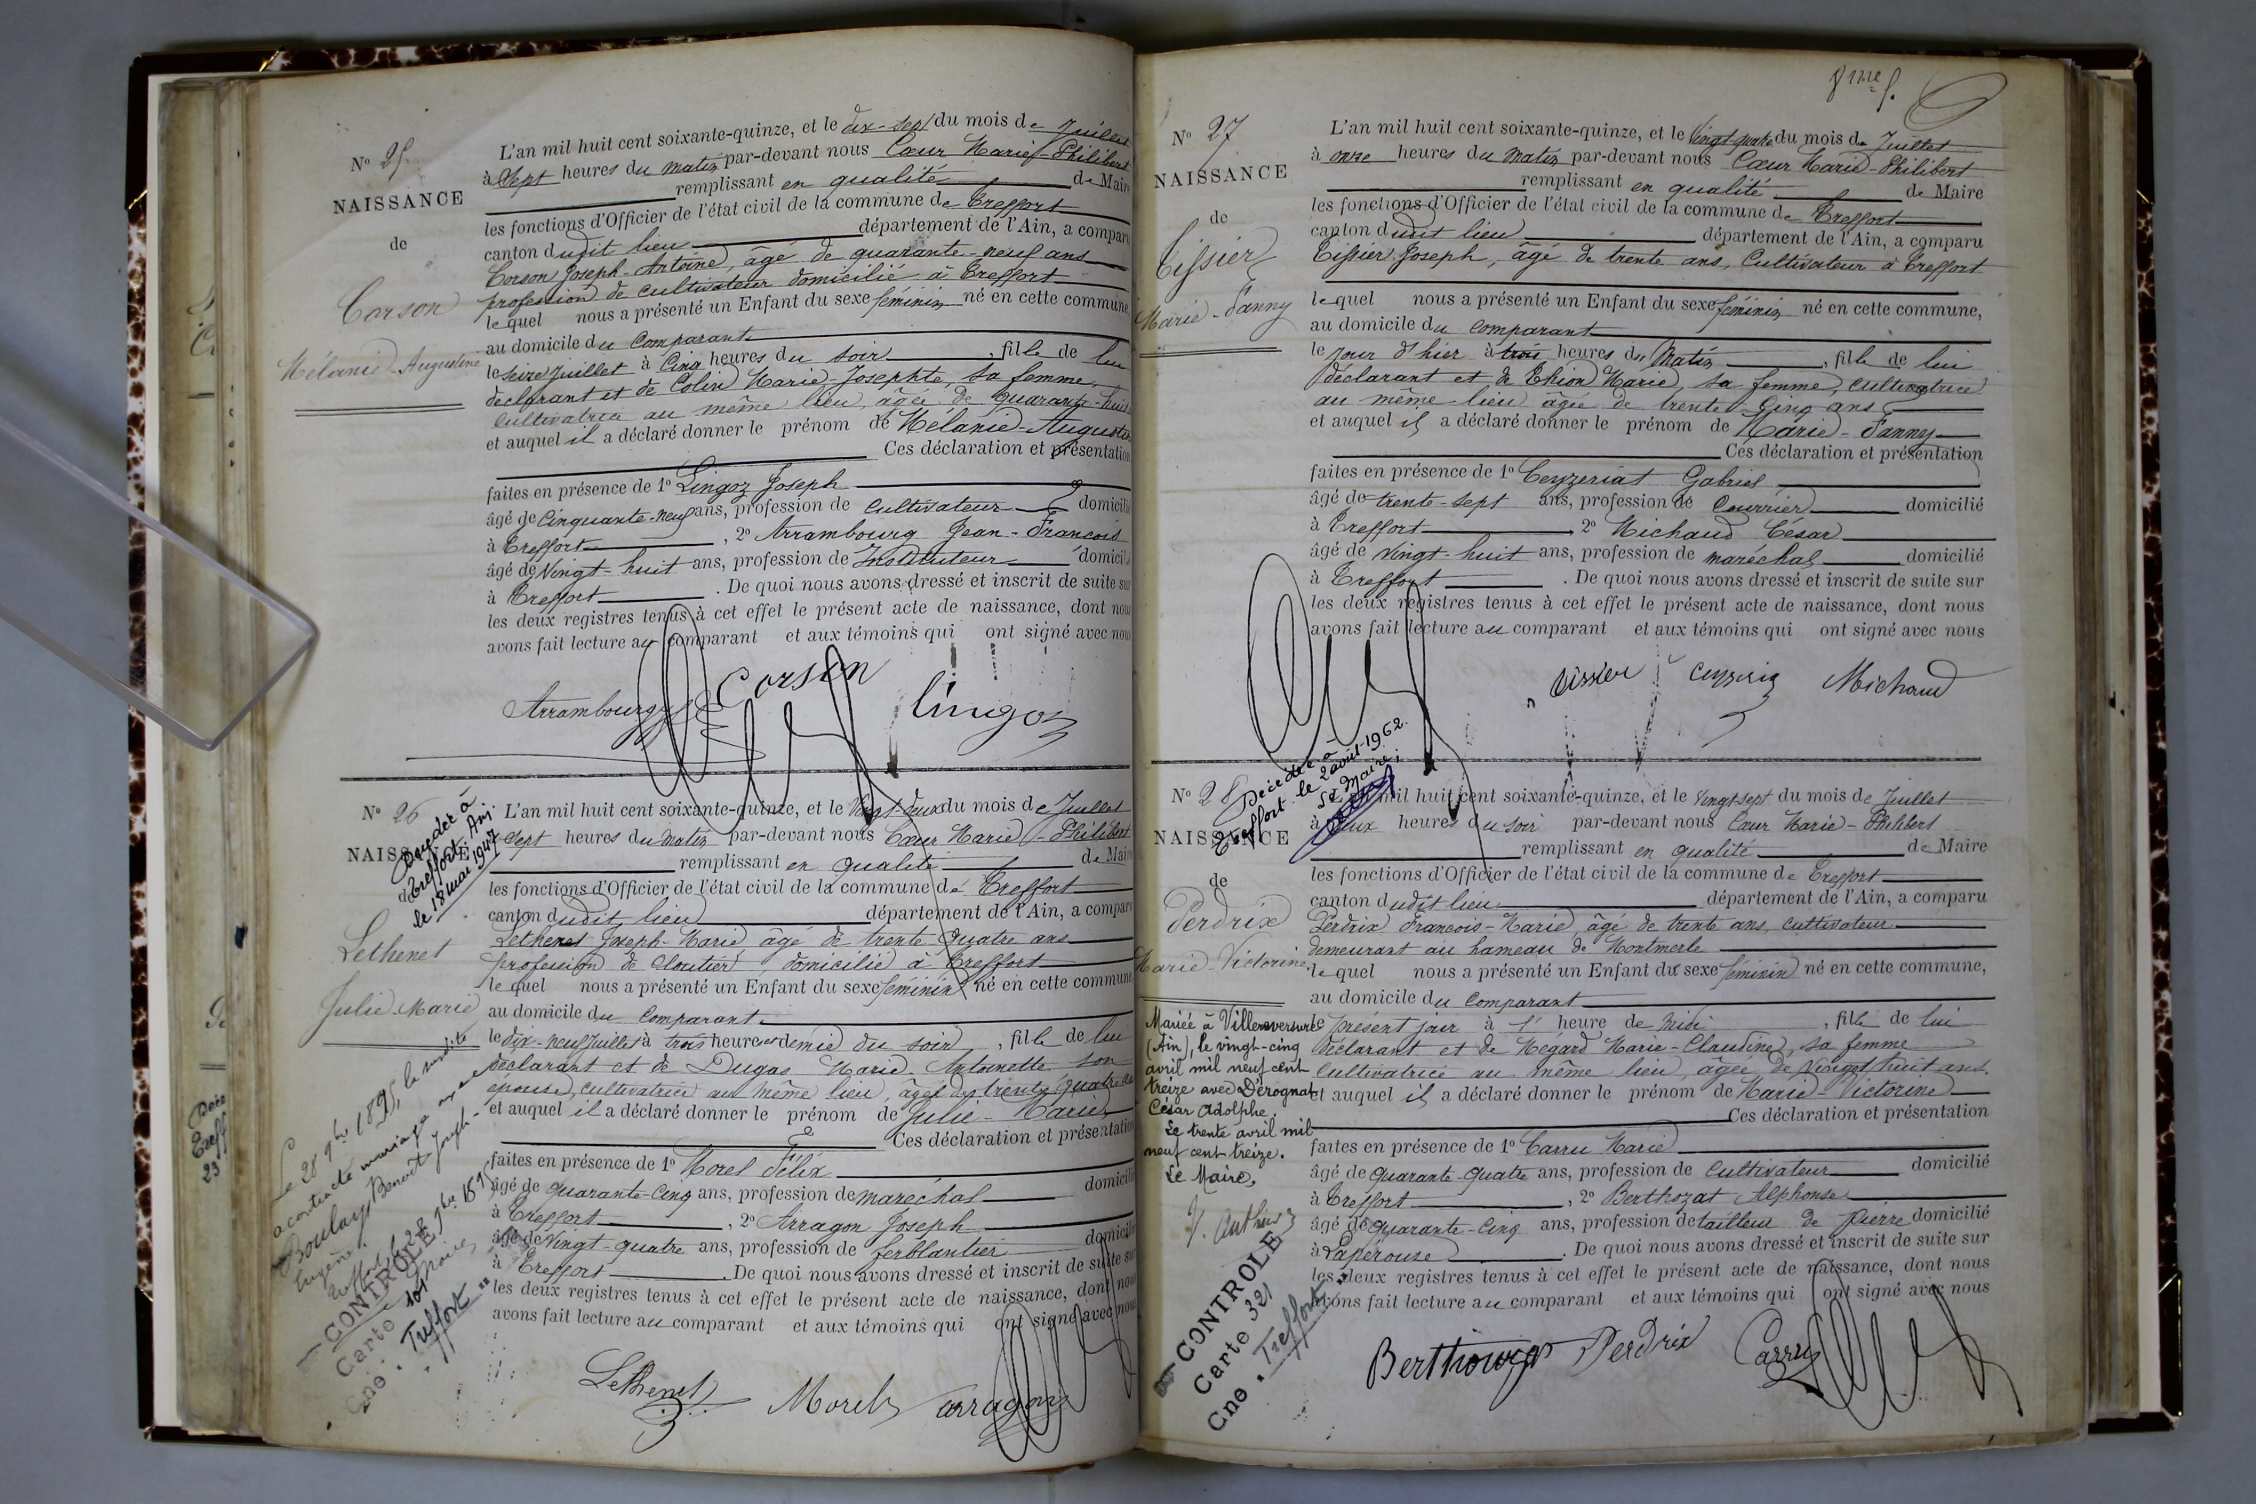 Nº 25
NAISSANCE
de
Corson
Mélanie-Augustine
L'an mil huit cent soixante-quinze, et le dix-sept du mois de Juillet
à Sept heures du matin par-devant nous Cœur Marie-Philibert
remplissant en qualité de Maire
les fonctions d'Officier de l'état civil de la commune de Treffort
canton dudit lieu département de l'Ain, a comparu
Corson Joseph-Antoine, âgé de quarante-neuf ans
profession de cultivateur domicilié à Treffort
lequel nous a présenté un Enfant du sexe féminin né en cette commune,
au domicile du comparant
le seize Juillet à Cinq heures du soir, fille de lui
déclarant et de Colin Marie Josephte, sa femme,
Cultivatrice au même lieu, âgée de quarante-huit
et auquel il a déclaré donner le prénom de Mélanie-Augustine
Ces déclaration et présentation
faites en présence de 1º Lingoz Joseph
âgé de Cinquante-neuf ans, profession de Cultivateur domicilié
à Treffort, 2º Arrambourg Jean-François
âgé de Vingt-huit ans, profession de Instituteur domicilié
à Treffort. De quoi nous avons dressé et inscrit de suite sur
les deux registres tenus à cet effet le présent acte de naissance, dont nous
avons fait lecture au comparant et aux témoins qui ont signé avec nous
Arrambourg Corson Lingoz
Nº 26
NAISSANCE
Décédée à
Treffort, Ain
le 18 mai 1947
Lethenet
Julie Marie
L'an mil huit cent soixante-quinze, et le Vingt-deux du mois de Juillet
Sept heures du Matin par-devant nous Cœur Marie-Philibert
remplissant en qualité de Maire
les fonctions d'Officier de l'état civil de la commune de Treffort
canton dudit lieu département de l'Ain, a comparu
Lethenet Joseph-Marie, âgé de trente-quatre ans
profession de Cloutier, domicilié à Treffort
lequel nous a présenté un Enfant du sexe féminin né en cette commune
au domicile du comparant
le dix-neuf Juillet à trois heures et demie du soir, fille de lui
déclarant et de Dugas Marie Antoinette son
épouse, cultivatrice au même lieu, âgée de trente quatre ans
et auquel il a déclaré donner le prénom de Julie-Marie
Ces déclaration et présentation
faites en présence de 1º Morel Félix
âgé de quarante-cinq ans, profession de maréchal domicilié
à Treffort, 2º Arragon Joseph
âgé de Vingt-quatre ans, profession de ferblantier domicilié
à Treffort. De quoi nous avons dressé et inscrit de suite sur
les deux registres tenus à cet effet le présent acte de naissance, dont nous
avons fait lecture au comparant et aux témoins qui ont signé avec nous
Le 28 9bre 1895, la susdite
a contracté mariage avec
Boulay Benoît Joseph
Eugène.
Treffort le 28 9bre 1895
CONTROLE
Carte 101
Cne. Treffort
Lethenet Morel Arragon
8me f.
Nº 27
NAISSANCE
de
Tissier
Marie-Fanny
L'an mil huit cent soixante-quinze, et le Vingt-quatre du mois de Juillet
à onze heures du Matin par-devant nous Cœur Marie-Philibert
remplissant en qualité de Maire
les fonctions d'Officier de l'état civil de la commune de Treffort
canton dudit lieu département de l'Ain, a comparu
Tissier Joseph, âgé de trente ans, Cultivateur à Treffort
lequel nous a présenté un Enfant du sexe féminin né en cette commune,
au domicile du comparant
le jour d'hier à trois heures du Matin, fille de lui
déclarant et de Thion Marie, sa femme, cultivatrice
au même lieu âgée de trente-cinq ans
et auquel il a déclaré donner le prénom de Marie-Fanny
Ces déclaration et présentation
faites en présence de 1º Ceyzeriat Gabriel
âgé de trente-sept ans, profession de Courrier domicilié
à Treffort 2º Michaud César
âgé de Vingt-huit ans, profession de maréchal domicilié
à Treffort. De quoi nous avons dressé et inscrit de suite sur
les deux registres tenus à cet effet le présent acte de naissance, dont nous
avons fait lecture au comparant et aux témoins qui ont signé avec nous
Tissier Ceyzeriat Michaud
Nº 28
NAISSANCE
de
Décédée à
Treffort le 2 avril 1962.
Le Maire;
Perdrix
Marie-Victorine
L'an mil huit cent soixante-quinze, et le Vingt-sept du mois de Juillet
à deux heures du soir par-devant nous Cœur Marie-Philibert
remplissant en qualité de Maire
les fonctions d'Officier de l'état civil de la commune de Treffort
canton dudit lieu département de l'Ain, a comparu
Perdrix François-Marie, âgé de trente ans, cultivateur
demeurant au hameau de Montmerle
lequel nous a présenté un Enfant du sexe féminin né en cette commune,
au domicile du comparant
le présent jour à 1' heure de Midi, fille de lui
déclarant et de Megard Marie-Claudine, sa femme
Cultivatrice au même lieu, âgée de vingt huit ans
et auquel il a déclaré donner le prénom de Marie-Victorine
Ces déclaration et présentation
faites en présence de 1º Carru Marie
âgé de quarante-quatre ans, profession de Cultivateur domicilié
à Treffort, 2º Berthozat Alphonse
âgé de quarante-cinq ans, profession de tailleur de pierre domicilié
à Lapérouse. De quoi nous avons dressé et inscrit de suite sur
les deux registres tenus à cet effet le présent acte de naissance, dont nous
avons fait lecture au comparant et aux témoins qui ont signé avec nous
Mariée à Villereversure
(Ain), le vingt-cinq
avril mil neuf cent
treize avec Dérognat
César Adolphe.
Le trente avril mil
neuf cent treize.
Le Maire,
CONTROLE
Carte 321
Cne. Treffort
Perdrix Carru